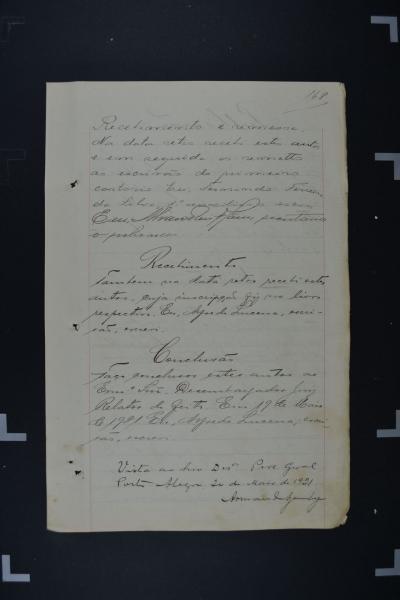 168
Recebimento e remessa
Na data retro recebi estes autos
e em seguida os remetto
ao escrivão do primeiro
cartorio Eu, Fernando Ferreira
da Silva,
Eu, secretario
o subscrevo
Recebimento
Tambem na data retro recebi estes
autos, cuja inscripção fiz no livro
respectivo. Eu, Alfredo Lucena, escri-
vão, escrevi.
Conclusão
Faço conclusos estes autos ao
Exmº Snr. Desembargador
Relator do feito. Em 19 de Maio
de 1921. Eu, Alfredo Lucena, escri-
vão, escrevi.
Vista ao Snr Desor Proc Geral
Porto Alegre 20 de Maio de 1921